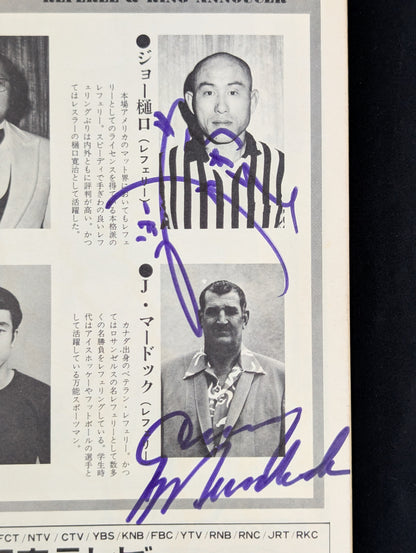 REFEREE & RING ANNOUCER
●ジョー樋口（レフェリー）
本場アメリカのマット界においてもレフェ
リーとしてのライセンスを得ている本格派の
レフェリー。スピーディで手ぎわの良いレフ
ェリングぶりは内外ともに評判が高い。かつ
てはレスラーの樋口寛治として活躍した。
●J・マードック（レフェリー
カナダ出身のベテラン・レフェリー。かつ
てはロサンゼルスの名レフェリーとして数多
くの名勝負をレフェリングしている。学生時
代はアイスホッケーやフットボールの選手と
して活躍している万能スポーツマン。
Murdock
FCT/NTV/CTV/YBS/KNB/FBC/YTV/RNB/RNC/JRT/RKC